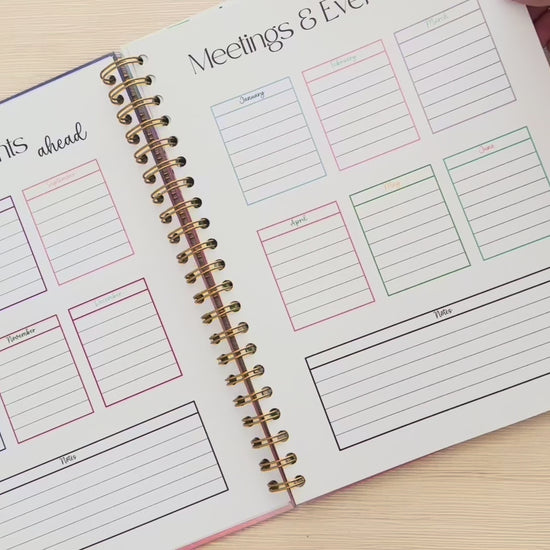 nts ahead
September
November
December
Notes
Meetings & Eve
January
February
March
April
May
June
Notes